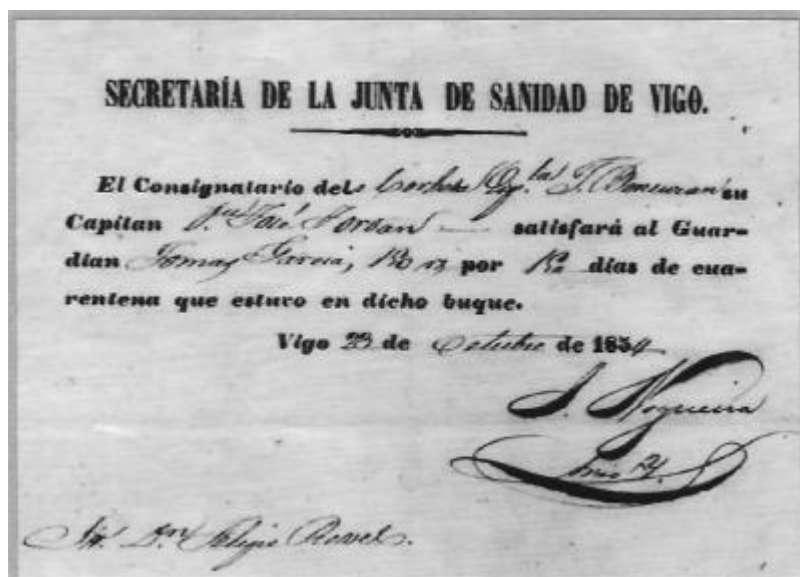 SECRETARÍA DE LA JUNTA DE SANIDAD DE VIGO.
El Consignatario del su
Capitan Dn José Jordan satisfará al Guar-
dian Tomas Garcia, rs por dias de cua-
rentena que estuvo en dicho buque.
Vigo 23 de Octubre de 1854
S. Nogueira
Sr. Dn